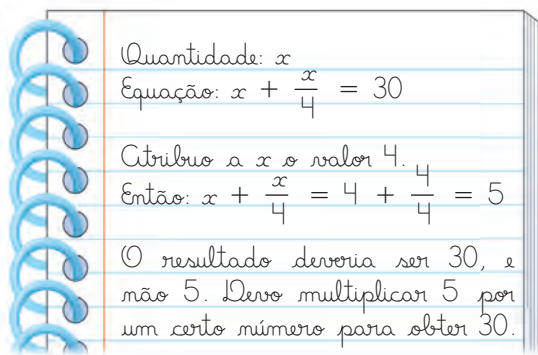 Quantidade: x
Equação: x + x/4 = 30
Atribuo a x o valor 4.
Então: x + x/4 = 4 + 4/4 = 5
O resultado deveria ser 30, e
não 5. Devo multiplicar 5 por
um certo número para obter 30.